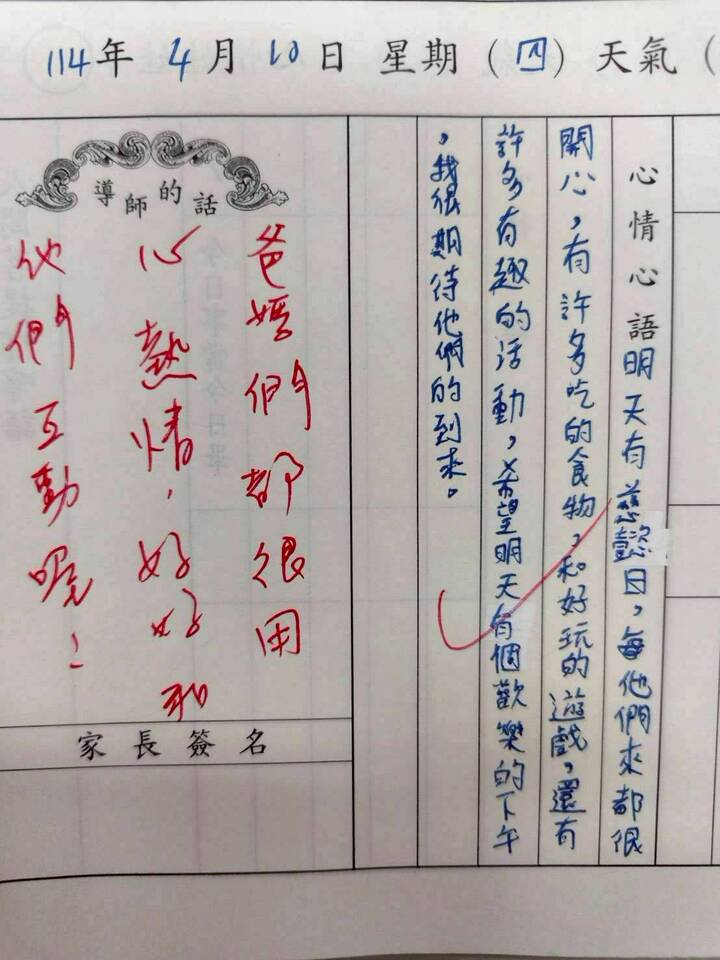 114年 4月 10日 星期(四)天氣(
心情心語明天有慈懿日,每他們來都很
開心,有許多吃的食物,和好玩的遊戲,還有
許多有趣的活動,希望明天有個歡樂的下午
,我很期待他們的到來。
導師的話
爸媽們都很用
心、熱情,好好和
他們互動喔!
家長簽名